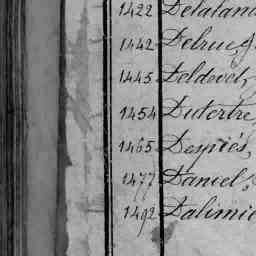 1422 Delalan
1442 Delrue,
1445 Deldevel,
1454 Dutertre,
1465 Després,
1477 Daniel,
1492 Dalimie